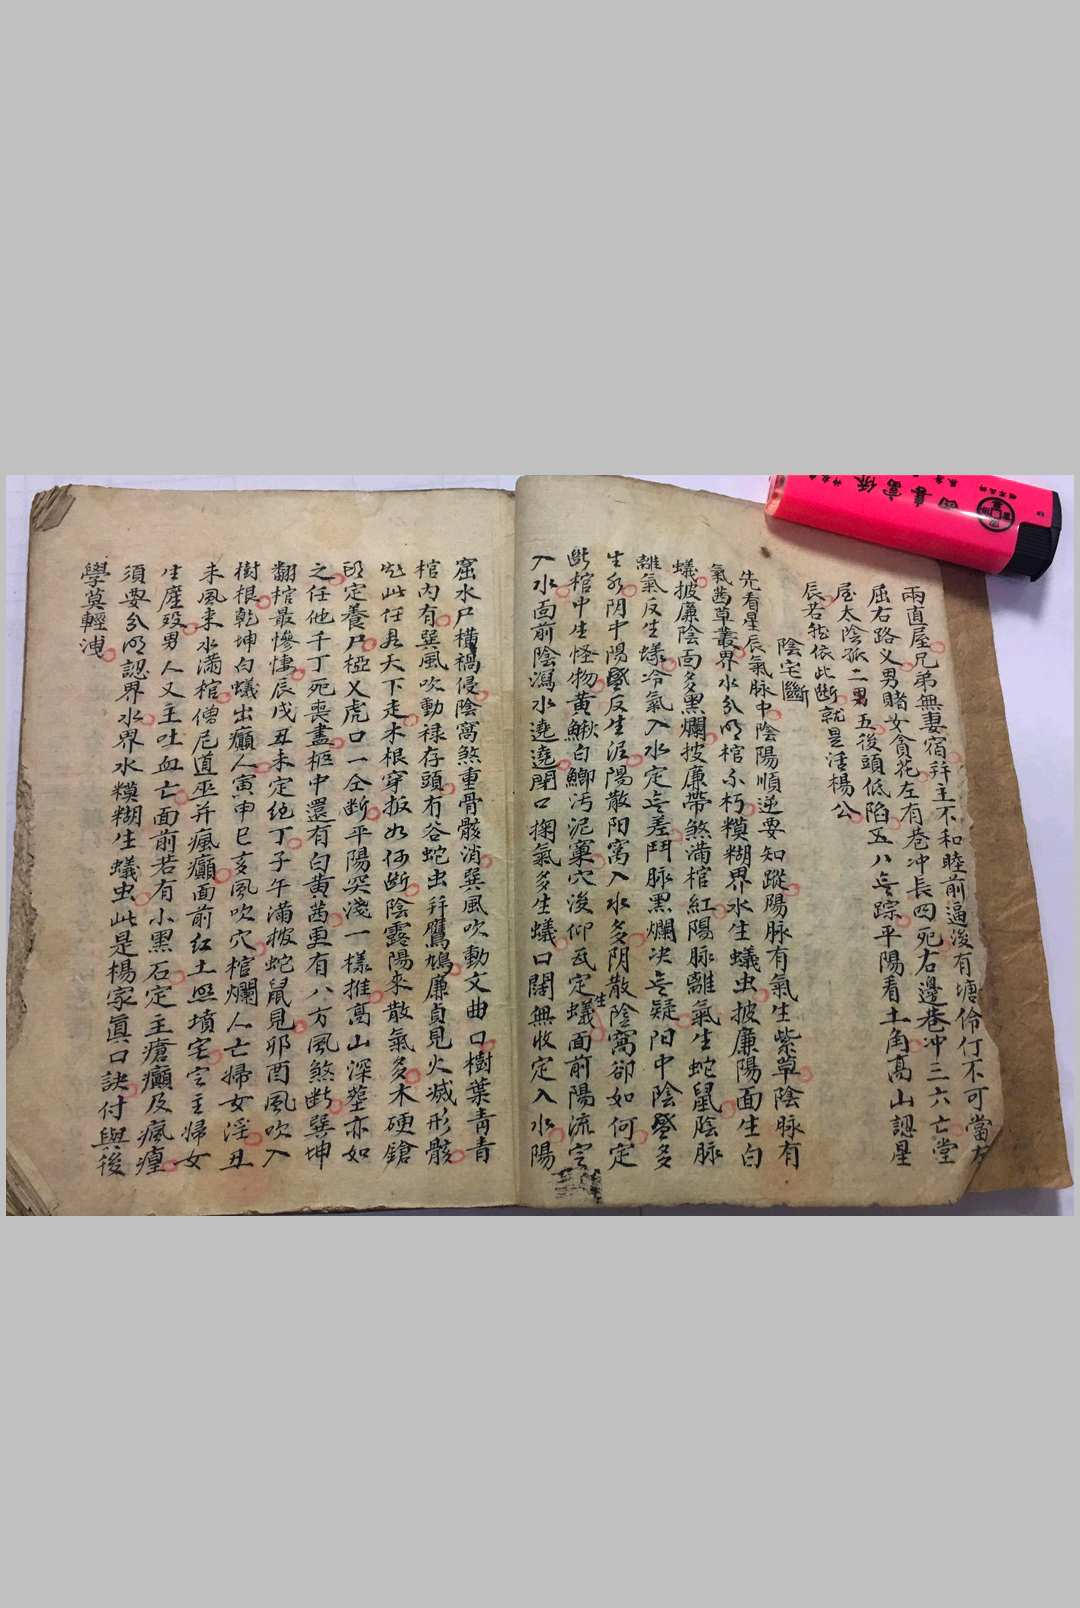 兩直屋兄弟無妻宿并主不和睦前逼後有塘伶仃不可當左
屈右路义男賭女貪花左有巷冲長四死右邊巷冲三六亡堂
屋太陰孤二男五後頭低陷五八無踪平陽看土角高山認星
辰若能依此斷就是活楊公
陰宅斷
先看星辰氣脉中陰陽順逆要知蹤陽脉有氣生紫草陰脉有
氣茜草叢界水分明棺不朽糢糊界水生蟻虫披廉陽面生白
蟻披廉陰面多黑爛披廉帶煞滿棺紅陽脉離氣生蛇鼠陰脉
離氣反生塚冷氣入水定無差鬥脉黑爛决無疑阳中陰多
生水阴中陽反生泥陽散阳窩入水多阴散陰窩卻如何定
斷棺中生怪物黄鰍白鱂污泥窠穴後仰瓦定生蟻面前陽流定
入水面前陰瀉水遶遶閉口掬氣多生蟻口闊無收定入水陽
窟水尸橫禍侵陰窩煞重骨骸消巽風吹動文曲口樹葉青青
棺内有巽風吹動禄存頭有谷蛇虫并鷹鳩廉貞見火减形骸
此任君天下走木根穿扳如何斷陰露陽來散氣多木硬鎗
即定養尸椏义虎口一仝断平陽突淺一樣推高山深壟亦如
之任他千丁死喪盡柩中還有白黄茜更有八方風煞断巽坤
翻棺最慘悽辰戌丑未定絕丁子午滿板蛇鼠見卯酉風吹入
樹根乾坤白蟻出癲人寅申巳亥風吹穴棺爛人亡婦女淫丑
未風来水滿棺僧尼道巫并瘋癲面前紅土照墳宅定主婦女
生產殁男人又主吐血亡面前若有小黑石定主瘡癲及瘋痘
須要分明認界水界水糢糊生蟻虫此是楊家眞口訣付與後
學莫輕洩